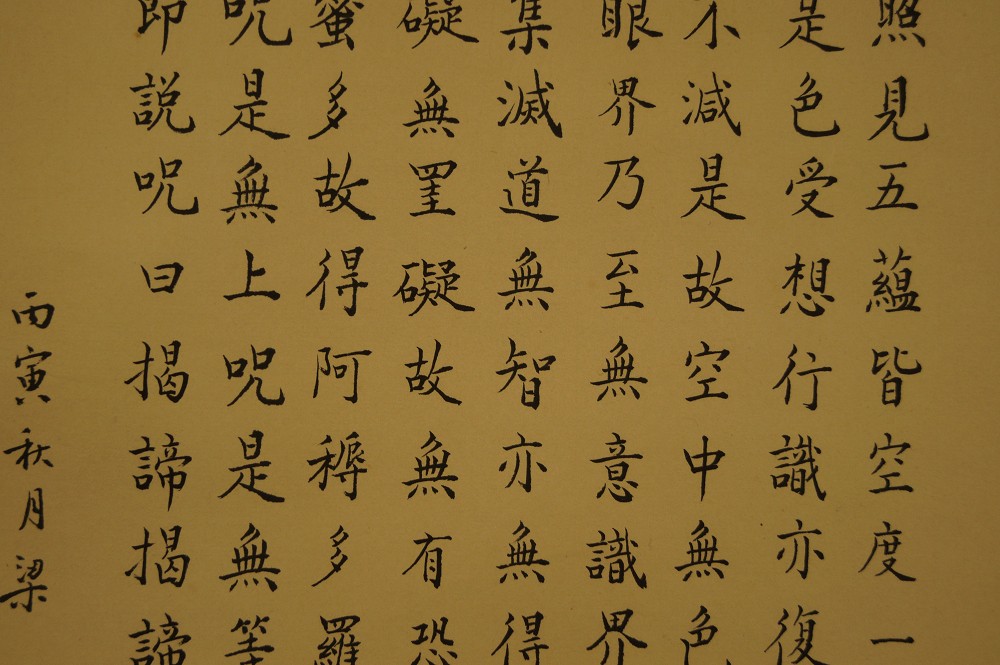 照見五蘊皆空度一
是色受想行識亦復
不減是故空中無色
眼界乃至無無意識界
集滅道無智亦無得
礙無罣礙故無有恐
蜜多故得阿耨多羅
咒是無上咒是無等
即説咒曰揭諦揭諦
丙寅秋月梁